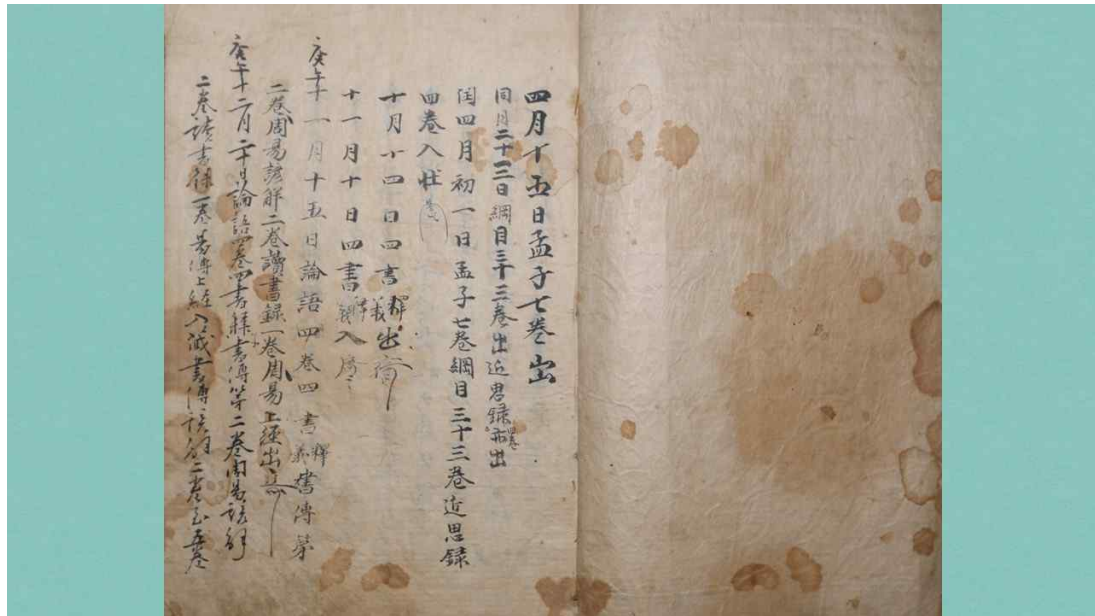 四月十五日孟子七卷出
同月二十三日綱目三十三卷出近思錄四卷亦出
閏四月初一日孟子七卷綱目三十三卷近思錄
四卷入
十月十四日四書釋義出
十一月十日四書釋義入
庚午十一月十五日論語四卷四書釋義書傳第
二卷周易諺解二卷讀書錄一卷周易上經出
庚午十二月二十日論語四卷四書釋書傳第二卷周易諺解
二卷讀書錄一卷易傳上經入 書傳諺解二卷